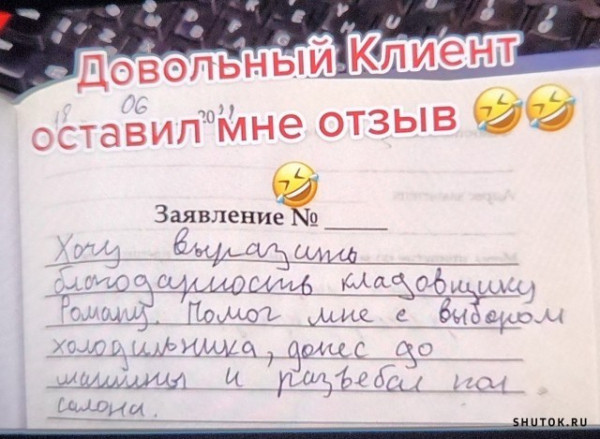 Довольный Клиент
18 06 20
оставил мне отзыв 🤣🤣
🤣
Заявление № ______
Хочу выразить
благодарность кладовщику
Роману. Помог мне с выбором
холодильника, донес до
машины и разъебал пол
салона.
SHUTOK.RU